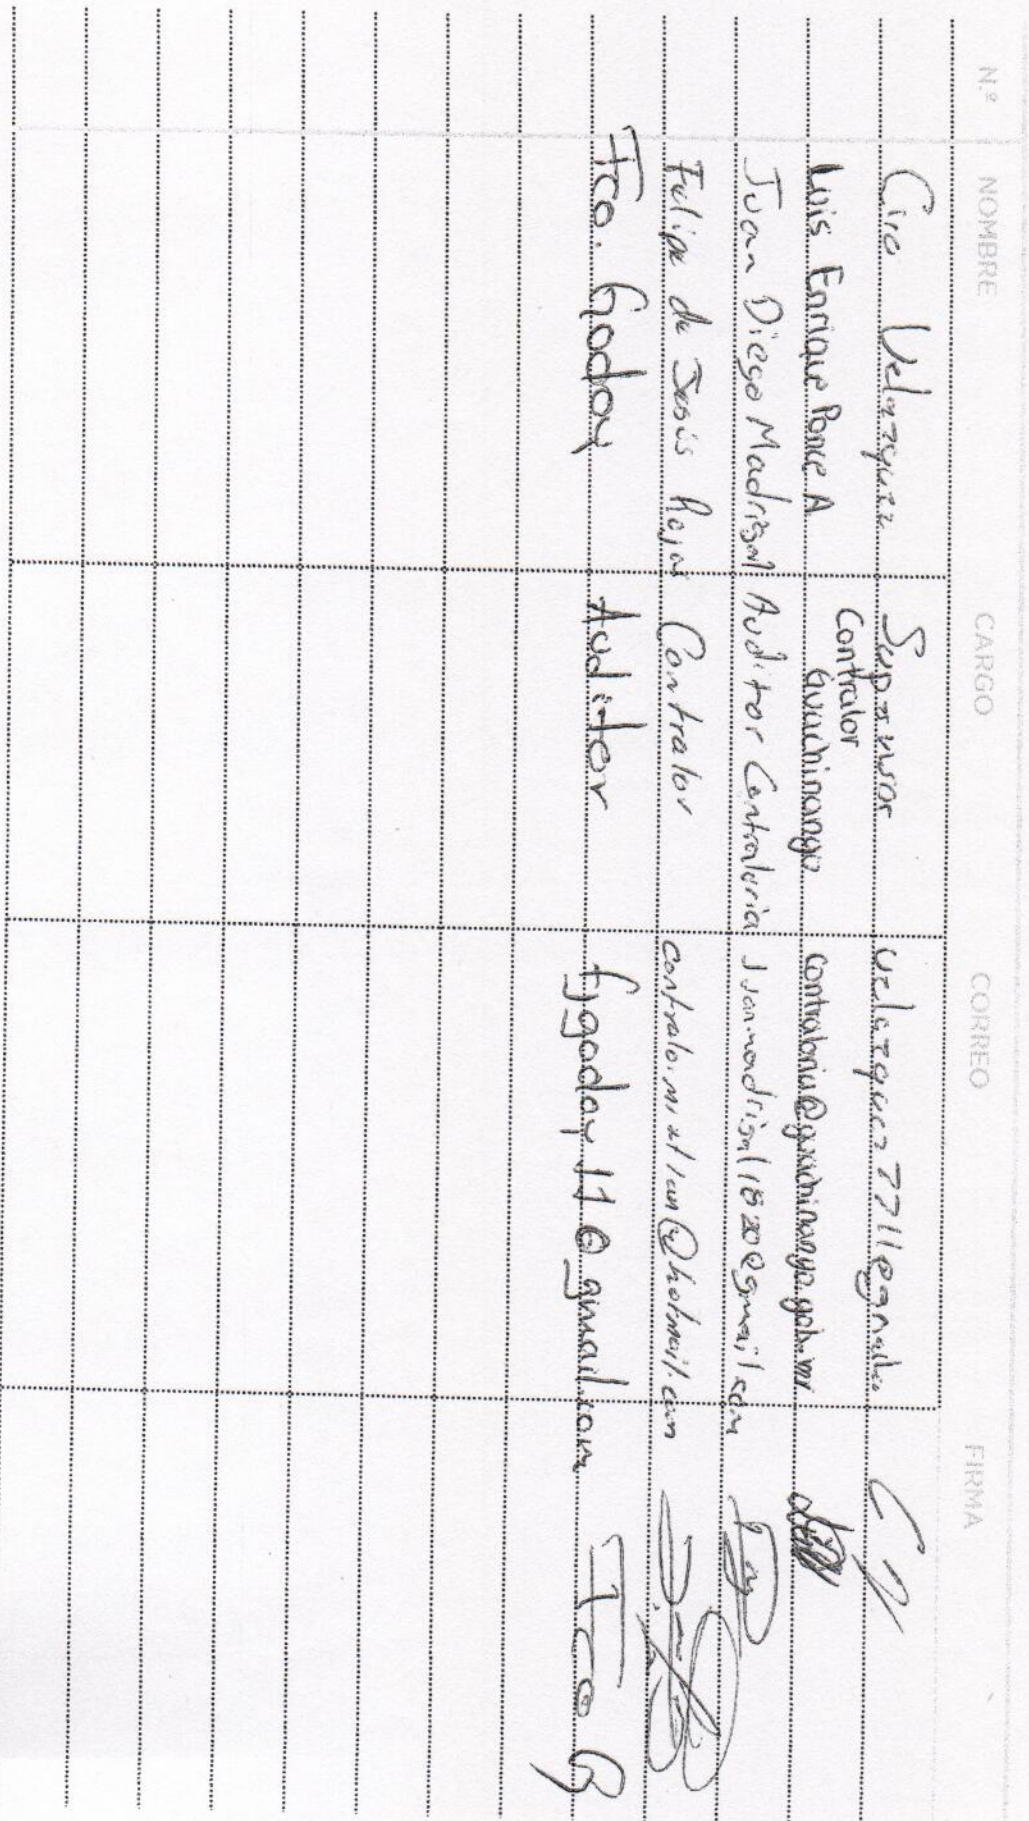 N.º NOMBRE CARGO CORREO FIRMA
Ciro Velazquez Supervisor velazquez7711@gmail.
Luis Enrique Ponce A Contralor Guachinango contraloria@guachinango.gob.mx
Juan Diego Madrigal Auditor Contraloria Juanmadrigal1820@gmail.com
Felipe de Jesús Rojas Contralor contralor.mixtlan@hotmail.com
Fco. Godoy Auditor fjgodoy11@gmail.com Fco G